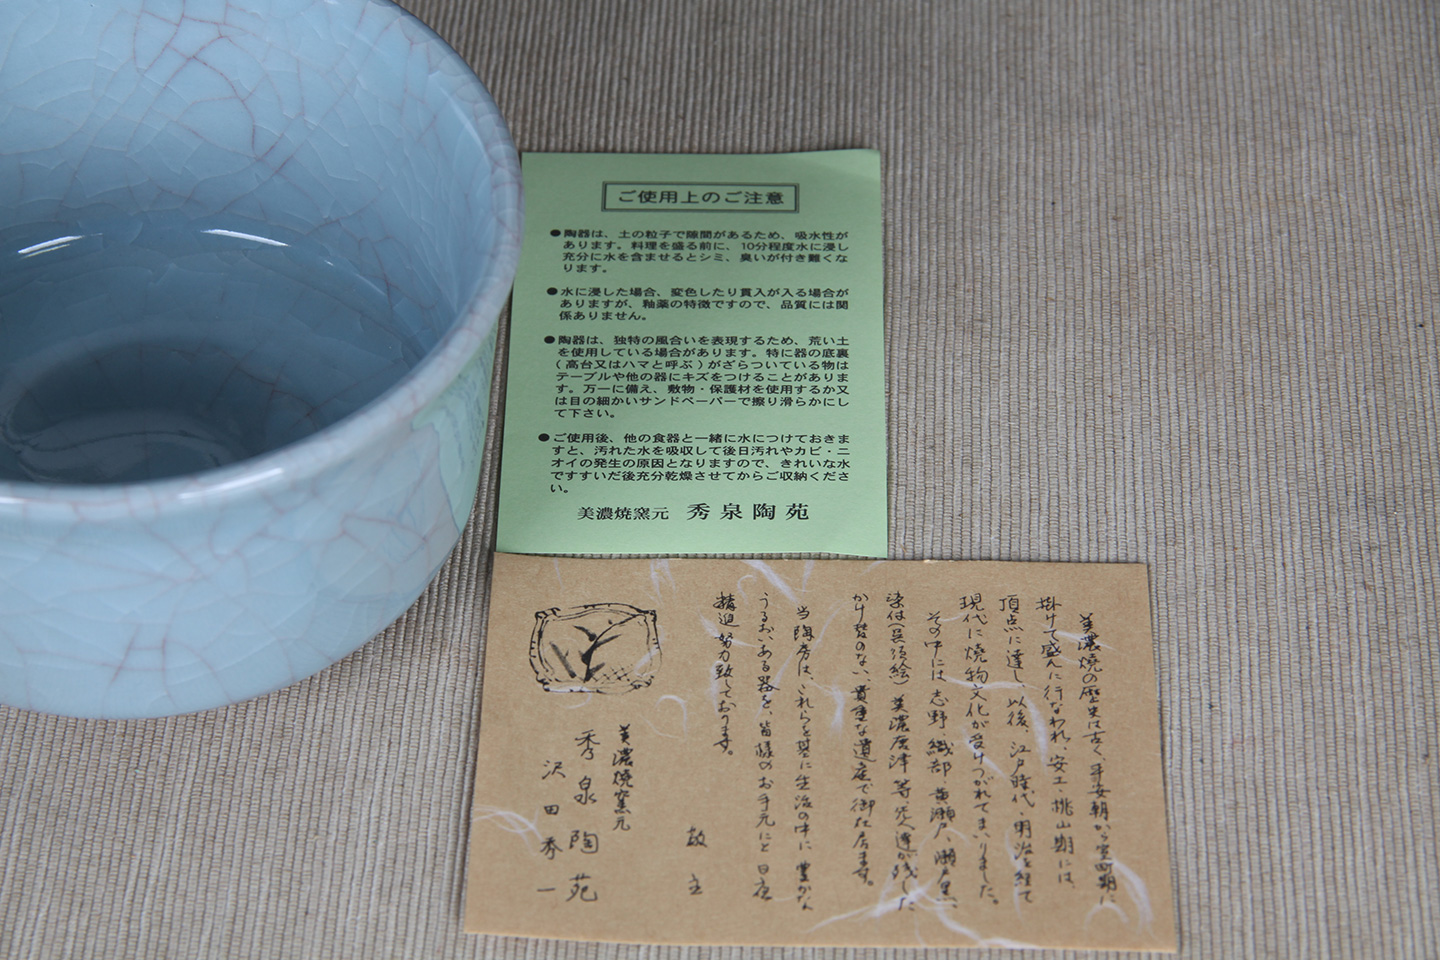 ご使用上のご注意
●陶器は、土の粒子で隙間があるため、吸水性が
あります。料理を盛る前に、10分程度水に浸し
充分に水を含ませるとシミ、臭いが付き難くな
ります。
●水に浸した場合、変色したり貫入が入る場合が
ありますが、釉薬の特徴ですので、品質には関
係ありません。
●陶器は、独特の風合いを表現するため、荒い土
を使用している場合があります。特に器の底裏
(高台又はハマと呼ぶ)がざらついている物は
テーブルや他の器にキズをつけることがありま
す。万一に備え、敷物・保護材を使用するか又
は目の細かいサンドペーパーで擦り滑らかにし
て下さい。
●ご使用後、他の食器と一緒に水につけておきま
すと、汚れた水を吸収して後日汚れやカビ・ニ
オイの発生の原因となりますので、きれいな水
ですすいだ後充分乾燥させてからご収納くださ
い。
美濃焼窯元 秀泉陶苑
美濃焼の歴史は古く、平安朝から室町期に
掛けて盛んに行なわれ、安土・桃山期には、
頂点に達し、以後、江戸時代・明治を経て
現代に焼物文化が受けつがれてまいりました。
その中には志野、織部、黄瀬戸、瀬戸黒、
染付(呉須絵)美濃唐津等、先人達が残した
かけ替のない、貴重な遺産で御在居ます。
当陶房は、これらを基に生活の中に豊かな
うるおいある器を、皆様のお手元にと日夜
精進努力致しております。
敬主
美濃焼窯元
秀泉陶苑
沢田秀一